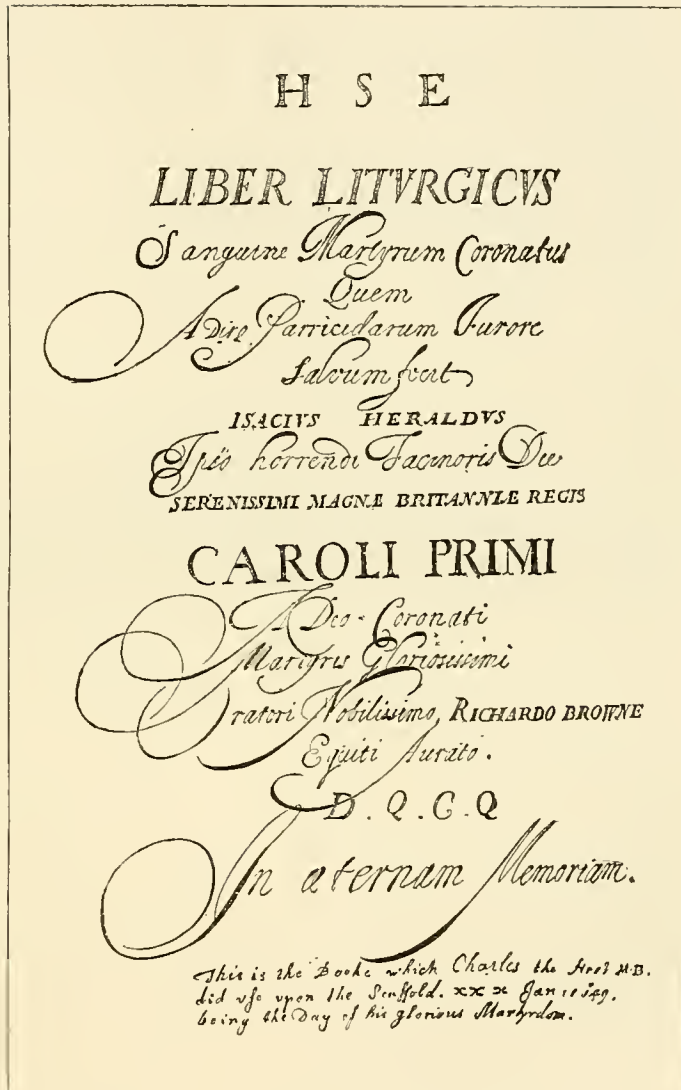 H S E
LIBER LITVRGICVS
Sanguine Martyrum Coronatus
Quem
A Diro Parricidarum Furore
Salvum fecit
ISACIVS HERALDVS
Ipso horrendi Facinoris Die
SERENISSIMI MAGNÆ BRITANNIÆ REGIS
CAROLI PRIMI
A Deo-Coronati
Martyris Gloriosissimi
Oratori Nobilissimo, RICHARDO BROWNE
Equiti Aurato.
D. Q. C. Q
In æternam Memoriam.
This is the Booke which Charles the first M.B.
did use upon the Scaffold. xxx Jan 1649.
being the Day of his glorious Martyrdom.